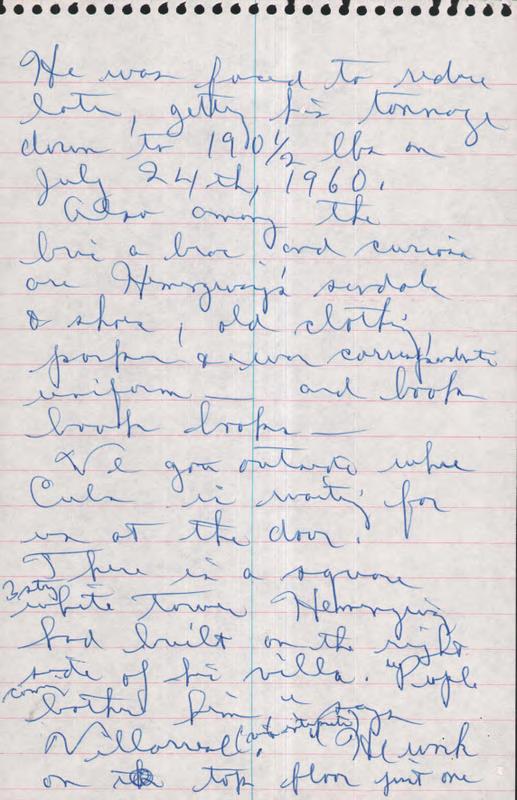 He was forced to reduce
later, getting his tonnage
down to 190 1/2 lbs on
July 24th, 1960.
Also among the
bric a brac and curiosa
are Hemingway's sandals
& shoes, old clothing,
& a war correspondents
uniform — and books
books books —
We go outside where
Cuba is waiting for
us at the door.
There is a square
3 story
white tower Hemingway
had built on the right
side of his villa. "People
come
bother him" says
Villarreal, 
"He work
on the top floor just one